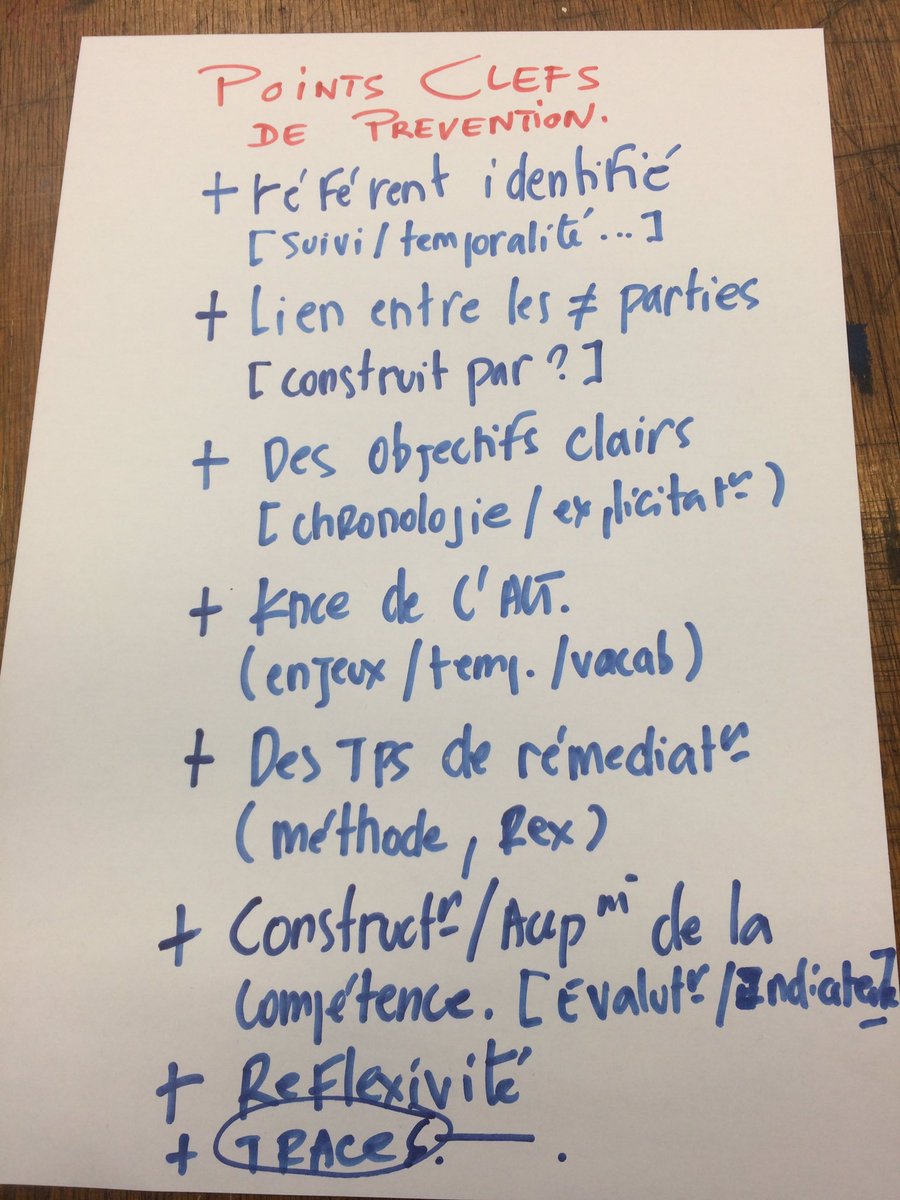 POINTS CLEFS
DE PREVENTION.
+ référent identifié
[suivi/temporalité...]
+ Lien entre les ≠ parties
[construit par ?]
+ Des objectifs clairs
[chronologie/explicitatn)
+ Knce de l'Alt.
(enjeux/temp./vocab)
+ Des TPS de rémediatn
(méthode, Rex)
+ Constructn/Accpm de la
compétence. [Évalutn/Indicateur]
+ Reflexivité
+ TRACES.